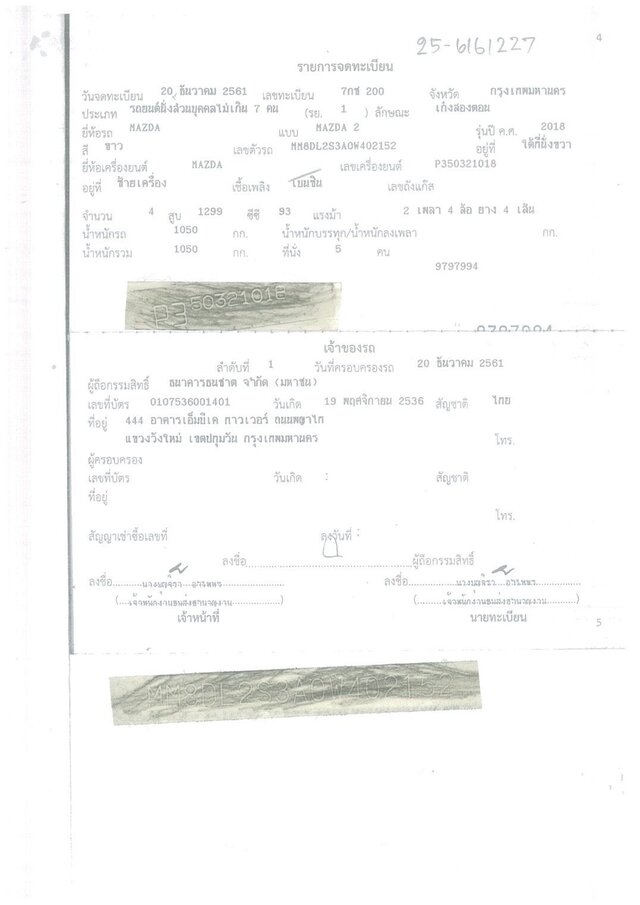 25-6161227
4
รายการจดทะเบียน
วันจดทะเบียน 20 ธันวาคม 2561 เลขทะเบียน 7กช 200 จังหวัด กรุงเทพมหานคร
ประเภท รถยนต์นั่งส่วนบุคคลไม่เกิน 7 คน (รย. 1 ) ลักษณะ เก๋งสองตอน
ยี่ห้อรถ MAZDA แบบ MAZDA 2 รุ่นปี ค.ศ. 2018
สี ขาว เลขตัวรถ MM8DL2S3A0W402152 อยู่ที่ ใต้ที่นั่งขวา
ยี่ห้อเครื่องยนต์ MAZDA เลขเครื่องยนต์ P350321018
อยู่ที่ ซ้ายเครื่อง เชื้อเพลิง เบนซิน เลขถังแก๊ส
จำนวน 4 สูบ 1299 ซีซี 93 แรงม้า 2 เพลา 4 ล้อ ยาง 4 เส้น
น้ำหนักรถ 1050 กก. น้ำหนักบรรทุก/น้ำหนักลงเพลา กก.
น้ำหนักรวม 1050 กก. ที่นั่ง 5 คน
9797994
P350321018
9797994
เจ้าของรถ
ลำดับที่ 1 วันที่ครอบครองรถ 20 ธันวาคม 2561
ผู้ถือกรรมสิทธิ์ ธนาคารธนชาต จำกัด (มหาชน)
เลขที่บัตร 0107536001401 วันเกิด 19 พฤศจิกายน 2536 สัญชาติ ไทย
ที่อยู่ 444 อาคารเอ็มบีเค ทาวเวอร์ ถนนพญาไท
แขวงวังใหม่ เขตปทุมวัน กรุงเทพมหานคร โทร.
ผู้ครอบครอง
เลขที่บัตร วันเกิด : สัญชาติ
ที่อยู่
โทร.
สัญญาเช่าซื้อเลขที่ ลงวันที่ :
ลงชื่อ ผู้ถือกรรมสิทธิ์
ลงชื่อ ลงชื่อ
(เจ้าพนักงานขนส่งชำนาญงาน) (เจ้าพนักงานขนส่งชำนาญงาน)
เจ้าหน้าที่ นายทะเบียน
5
MM8DL2S3A0W402152